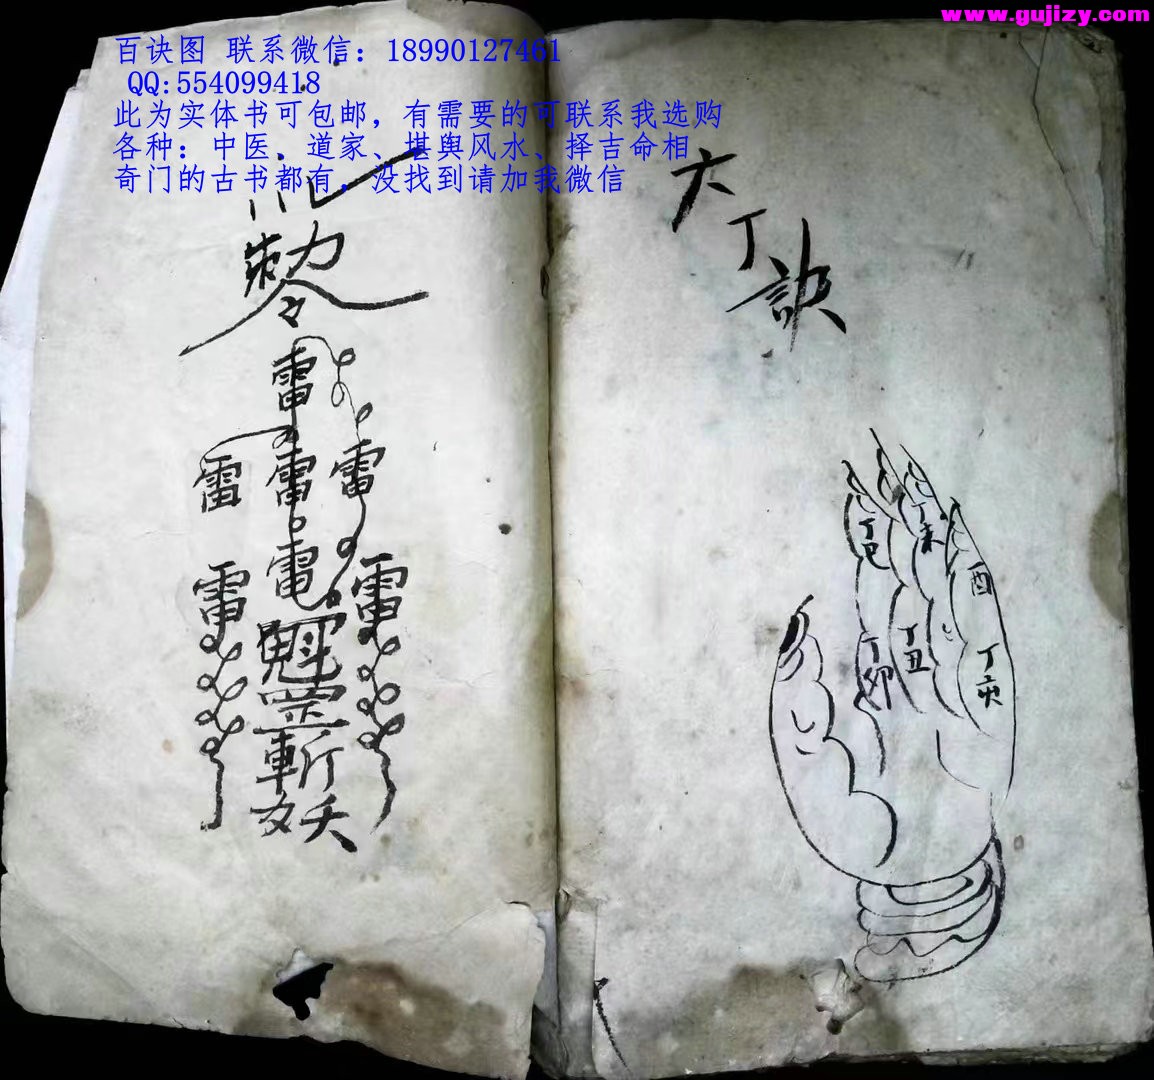 www.gujizy.com
百诀图 联系微信：18990127461
QQ:554099418
此为实体书可包邮，有需要的可联系我选购
各种：中医、道家、堪舆风水、择吉命相
奇门的古书都有，没找到请加我微信
六丁訣
丁巳
丁未
酉
丁卯
丁丑
丁亥
雷
雷 雷 雷
雷 電 雷
魁罡斬妖